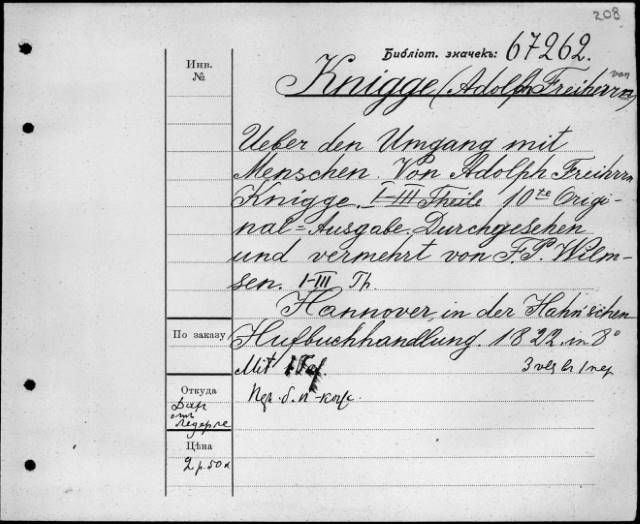 208
Библіот. значекъ: 67262.
Инв.
№
Knigge (Adolph Freiherrn von)
Ueber den Umgang mit
Menschen. Von Adolph Freihrrn
Knigge. I-III Theile 10te Origi-
nal=Ausgabe. Durchgesehen
und vermehrt von F. P. Wilm-
sen. I-III Th.
Hannover, in der Hahn'schen
По заказу
Hufbuchhandlung. 1822. in 8°
Mit 1
3 vol. in 1 пер
Откуда
Даръ
отъ
Цѣна
2 р. 50 к